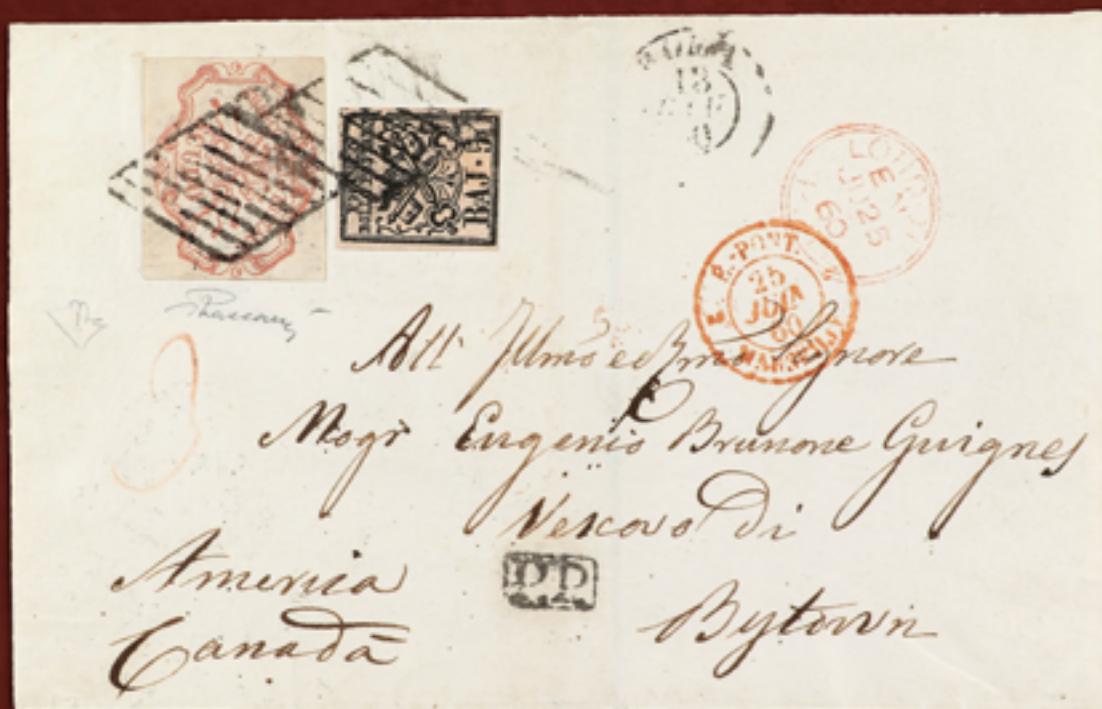 BAJ. 5
18
LOND
E
JU 25
60
E. PONT.
25
JUIN
60
MARSEILLE
3
All' Illmo e Rmo Signore
Mogr Eugenio Brunone Guignes
Vescovo Di
America
P.P.
Bytown
Canadà